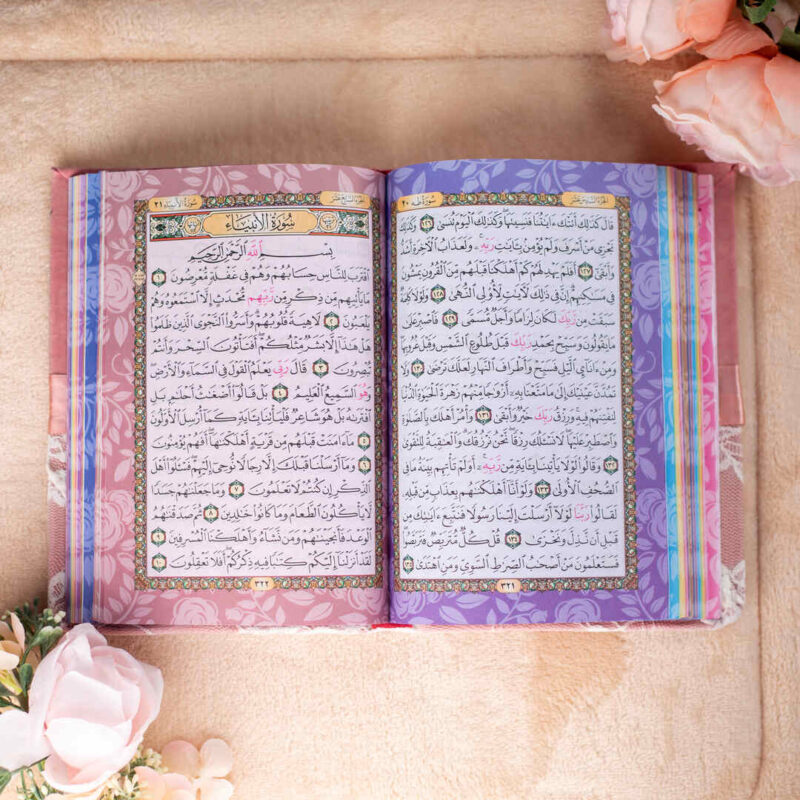 الجزء السادس عشر
سورة طه ٢٠
قَالَ كَذَٰلِكَ أَتَتْكَ ءَايَٰتُنَا فَنَسِيتَهَا وَكَذَٰلِكَ ٱلْيَوْمَ تُنسَىٰ ١٢٦ وَكَذَٰلِكَ
نَجْزِى مَنْ أَسْرَفَ وَلَمْ يُؤْمِنۢ بِـَٔايَٰتِ رَبِّهِۦ وَلَعَذَابُ ٱلْءَاخِرَةِ أَشَدُّ
وَأَبْقَىٰٓ ١٢٧ أَفَلَمْ يَهْدِ لَهُمْ كَمْ أَهْلَكْنَا قَبْلَهُم مِّنَ ٱلْقُرُونِ يَمْشُونَ
فِى مَسَٰكِنِهِمْ إِنَّ فِى ذَٰلِكَ لَءَايَٰتٍ لِّأُو۟لِى ٱلنُّهَىٰ ١٢٨ وَلَوْلَا كَلِمَةٌ
سَبَقَتْ مِن رَّبِّكَ لَكَانَ لِزَامًا وَأَجَلٌ مُّسَمًّى ١٢٩ فَٱصْبِرْ عَلَىٰ
مَا يَقُولُونَ وَسَبِّحْ بِحَمْدِ رَبِّكَ قَبْلَ طُلُوعِ ٱلشَّمْسِ وَقَبْلَ غُرُوبِهَا
وَمِنْ ءَانَآئِ ٱلَّيْلِ فَسَبِّحْ وَأَطْرَافَ ٱلنَّهَارِ لَعَلَّكَ تَرْضَىٰ ١٣٠ وَلَا
تَمُدَّنَّ عَيْنَيْكَ إِلَىٰ مَا مَتَّعْنَا بِهِۦٓ أَزْوَٰجًا مِّنْهُمْ زَهْرَةَ ٱلْحَيَوٰةِ ٱلدُّنْيَا
لِنَفْتِنَهُمْ فِيهِ وَرِزْقُ رَبِّكَ خَيْرٌ وَأَبْقَىٰ ١٣١ وَأْمُرْ أَهْلَكَ بِٱلصَّلَوٰةِ
وَٱصْطَبِرْ عَلَيْهَا لَا نَسْـَٔلُكَ رِزْقًا نَّحْنُ نَرْزُقُكَ وَٱلْعَٰقِبَةُ لِلتَّقْوَىٰ
١٣٢ وَقَالُوا۟ لَوْلَا يَأْتِينَا بِـَٔايَةٍ مِّن رَّبِّهِۦٓ أَوَلَمْ تَأْتِهِم بَيِّنَةُ مَا فِى
ٱلصُّحُفِ ٱلْأُولَىٰ ١٣٣ وَلَوْ أَنَّآ أَهْلَكْنَٰهُم بِعَذَابٍ مِّن قَبْلِهِۦ
لَقَالُوا۟ رَبَّنَا لَوْلَآ أَرْسَلْتَ إِلَيْنَا رَسُولًا فَنَتَّبِعَ ءَايَٰتِكَ مِن
قَبْلِ أَن نَّذِلَّ وَنَخْزَىٰ ١٣٤ قُلْ كُلٌّ مُّتَرَبِّصٌ فَتَرَبَّصُوا۟
فَسَتَعْلَمُونَ مَنْ أَصْحَٰبُ ٱلصِّرَٰطِ ٱلسَّوِىِّ وَمَنِ ٱهْتَدَىٰ ١٣٥
٣٢١
الجزء السابع عشر
سورة الأنبياء ٢١
سُورَةُ الأَنبِيَاءِ
بِسْمِ ٱللَّهِ ٱلرَّحْمَٰنِ ٱلرَّحِيمِ
ٱقْتَرَبَ لِلنَّاسِ حِسَابُهُمْ وَهُمْ فِى غَفْلَةٍ مُّعْرِضُونَ ١
مَا يَأْتِيهِم مِّن ذِكْرٍ مِّن رَّبِّهِم مُّحْدَثٍ إِلَّا ٱسْتَمَعُوهُ وَهُمْ
يَلْعَبُونَ ٢ لَاهِيَةً قُلُوبُهُمْ وَأَسَرُّوا۟ ٱلنَّجْوَى ٱلَّذِينَ ظَلَمُوا۟
هَلْ هَٰذَآ إِلَّا بَشَرٌ مِّثْلُكُمْ أَفَتَأْتُونَ ٱلسِّحْرَ وَأَنتُمْ
تُبْصِرُونَ ٣ قَالَ رَبِّى يَعْلَمُ ٱلْقَوْلَ فِى ٱلسَّمَآءِ وَٱلْأَرْضِ
وَهُوَ ٱلسَّمِيعُ ٱلْعَلِيمُ ٤ بَلْ قَالُوٓا۟ أَضْغَٰثُ أَحْلَٰمٍ بَلِ
ٱفْتَرَىٰهُ بَلْ هُوَ شَاعِرٌ فَلْيَأْتِنَا بِـَٔايَةٍ كَمَآ أُرْسِلَ ٱلْأَوَّلُونَ
٥ مَآ ءَامَنَتْ قَبْلَهُم مِّن قَرْيَةٍ أَهْلَكْنَٰهَآ أَفَهُمْ يُؤْمِنُونَ
٦ وَمَآ أَرْسَلْنَا قَبْلَكَ إِلَّا رِجَالًا نُّوحِىٓ إِلَيْهِمْ فَسْـَٔلُوٓا۟ أَهْلَ
ٱلذِّكْرِ إِن كُنتُمْ لَا تَعْلَمُونَ ٧ وَمَا جَعَلْنَٰهُمْ جَسَدًا
لَّا يَأْكُلُونَ ٱلطَّعَامَ وَمَا كَانُوا۟ خَٰلِدِينَ ٨ ثُمَّ صَدَقْنَٰهُمُ
ٱلْوَعْدَ فَأَنجَيْنَٰهُمْ وَمَن نَّشَآءُ وَأَهْلَكْنَا ٱلْمُسْرِفِينَ ٩
لَقَدْ أَنزَلْنَآ إِلَيْكُمْ كِتَٰبًا فِيهِ ذِكْرُكُمْ أَفَلَا تَعْقِلُونَ ١٠
٣٢٢